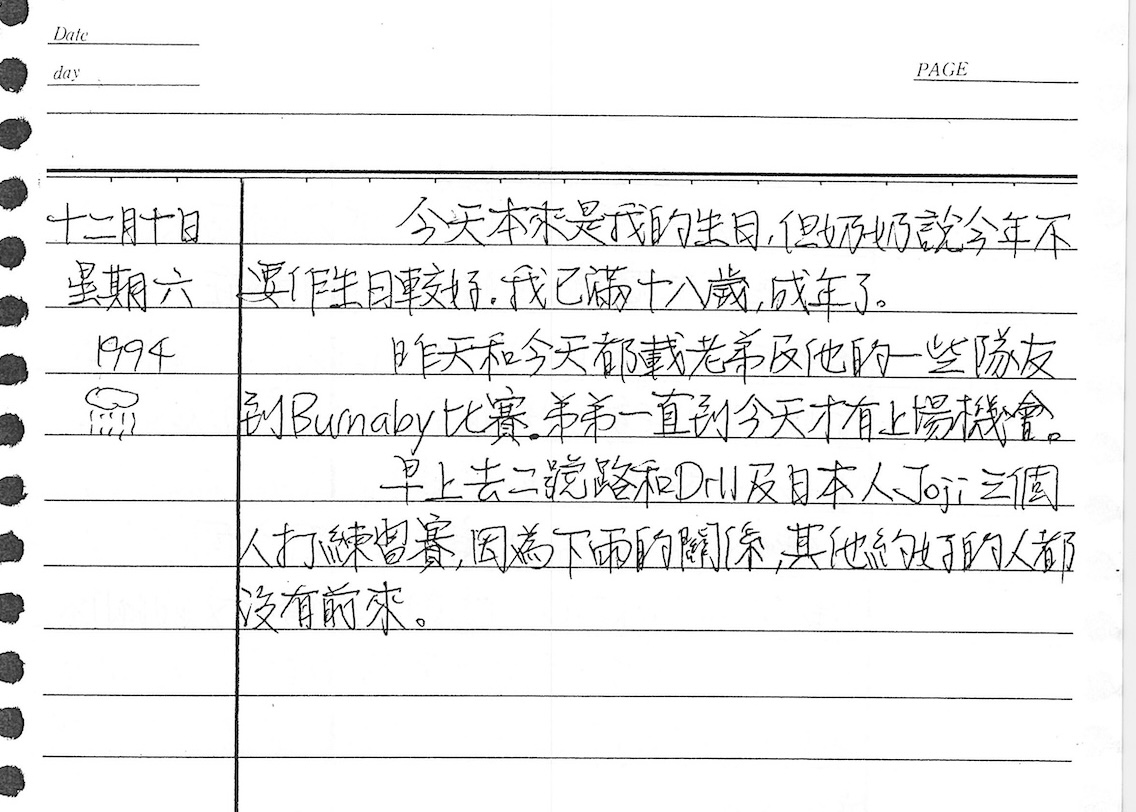 Date
day
PAGE
十二月十日
星期六
1994
今天本來是我的生日,但奶奶說今年不
要作生日較好.我已滿十八歲,成年了。
昨天和今天都載老弟及他的一些隊友
到Burnaby比賽.弟弟一直到今天才有上場機會。
早上去二號路和及日本人Joji三個
人打練習賽,因為下雨的關係,其他約好的人都
沒有前來。